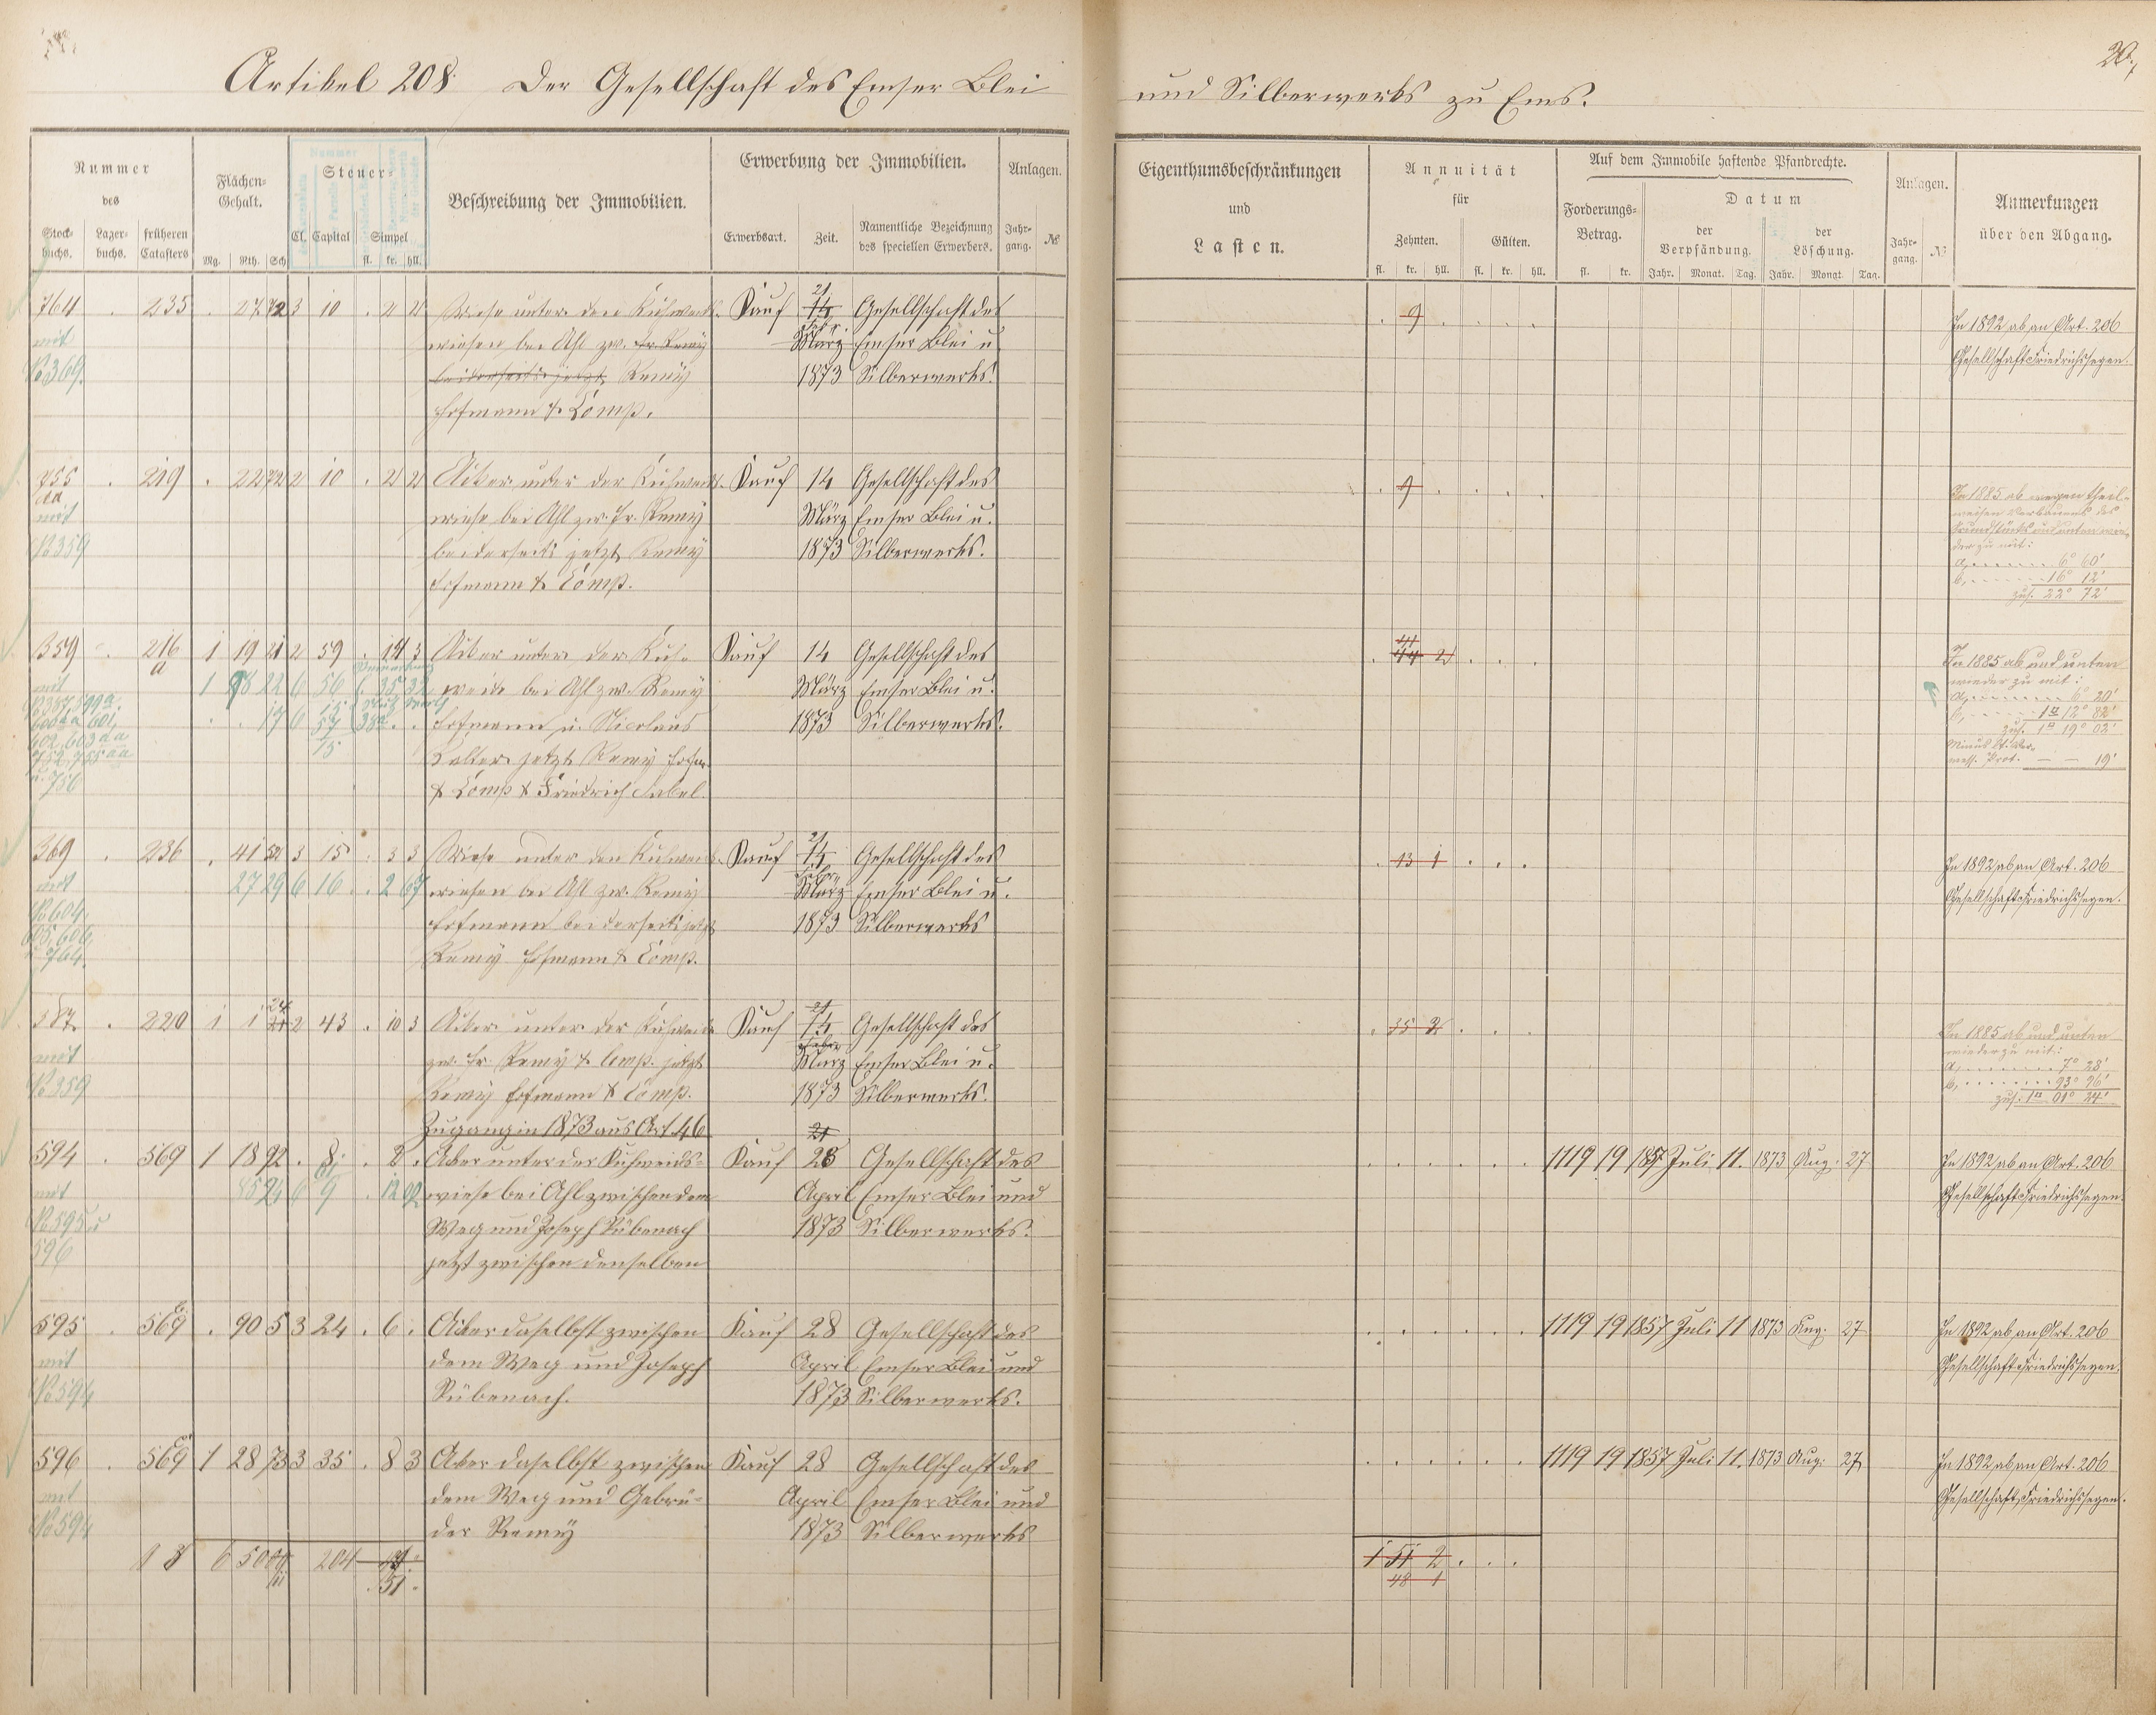 Artikel 208. Der Gesellschaft des Emser Blei und Silberwerks zu Ems.
20
Nummer des
Stockbuchs. Lagerbuchs. früheren Catasters
Flächen-Gehalt.
Mg. Rth. Sch.
Steuer-
Cl. Capital Simpel
fl. kr. hll.
Beschreibung der Immobilien.
Erwerbung der Immobilien.
Erwerbsart. Zeit. Namentliche Bezeichnung des speciellen Erwerbers.
Anlagen.
Jahrgang. №
Eigenthumsbeschränkungen
und
Lasten.
Annuität
für
Zehnten. Gülten.
fl. kr. hll. fl. kr. hll.
Auf dem Immobile haftende Pfandrechte.
Forderungs-Betrag.
fl. kr.
Datum
der Verpfändung. der Löschung.
Jahr. Monat. Tag. Jahr. Monat. Tag.
Anlagen.
Jahrgang. №
Anmerkungen
über den Abgang.
764 . 235 . 27 72 3 10 . 2 2 Wiese unter den Kuhweids- Kauf 21 14 Gesellschaft des
mit wiesen bei Ahl zw. Fr. Remy Febr. März Emser Blei u
No 369. beiderseits jetzt Remy 1873 Silberwerks.
Hofmann & Comp.
. 9 . . . .
In 1892 ab an Art. 206
Gesellschaft Friedrichssegen.
755 . 219 . 22 72 2 10 . 2 2 Acker unter der Kuhweids- Kauf 14 Gesellschaft des
aa
mit wiese bei Ahl zw. Fr. Remy März Emser Blei u.
No 359 beiderseits jetzt Remy 1873 Silberwerks.
Hofmann & Comp.
. 9 . . . .
In 1885 ab wegen theil-
weisen Verbauens des
Grundstücks und unten wie-
der zu mit:
a, 6° 60'
b, 16° 12'
zus. 22° 72'
359 . 216 1 19 21 2 59 . 14 3 Acker unter der Kuh- Kauf 14 Gesellschaft des
a
mit 1 98 22 6 56 35 32 weide bei Ahl zw. Remy März Emser Blei u.
No 387, 599a.
600 601, . . 17 6 57 Hofmann u. Nicolaus 1873 Silberwerks.
602, 603 aa
752, 755 aa 15 Kalter jetzt Remy Hofm.
u. 756 & Comp & Friedrich Sabel.
. 44 2 . . .
In 1885 ab und unten
wieder zu mit:
a, 6° 20'
b, 1 m 12° 82'
zus. 1 m 19° 02'
Minus lt. Ver-
mess. Prot. — — 19'
369 . 236 . 41 52 3 15 . 3 3 Wiese unter den Kuhweids- Kauf 21 14 Gesellschaft des
mit 27 29 6 16 . 2 67 wiesen bei Ahl zw. Remy Febr. März Emser Blei u.
No 604, Hofmann beiderseits jetzt 1873 Silberwerks
605, 606,
u 764. Remy Hofmann & Comp.
. 13 1 . . .
In 1892 ab an Art. 206
Gesellschaft Friedrichssegen.
387 . 220 1 1 24 2 43 . 10 3 Acker unter der Kuhweide Kauf 21 14 Gesellschaft des
mit zw. Fr. Remy & Comp. jetzt Febr. März Emser Blei u.
No 359 Remy Hofmann & Comp. 1873 Silberwerks.
. 35 2 . . .
In 1885 ab und unten
wieder zu mit:
a, 7° 28'
b, 93° 96'
zus: 1 m 01° 24'
Zugang in 1873 aus Art. 46 21
594 . 569 1 18 92 . 8 . . 2 . Acker unter der Kuhweids- Kauf 28 Gesellschaft des
mit 85 94 6 9 . 12 02 wiese bei Ahl zwischen dem April Emser Blei und
No 595 u Weg und Joseph Rübenach 1873 Silberwerks.
596 jetzt zwischen denselben
1119 19 1857 Juli 11. 1873 Aug. 27
In 1892 ab an Art. 206
Gesellschaft Friedrichssegen.
595 . 569 b. . 90 5 3 24 . 6 . Acker daselbst zwischen Kauf 28 Gesellschaft des
mit dem Weg und Joseph April Emser Blei und
No 594 Rübenach. 1873 Silberwerks.
1119 19 1857 Juli 11 1873 Aug. 27
In 1892 ab an Art. 206
Gesellschaft Friedrichssegen.
596 . 569 c. 1 28 73 3 35 . 8 3 Acker daselbst zwischen Kauf 28 Gesellschaft des
mit dem Weg und Gebrü- April Emser Blei und
No 594 der Remy 1873 Silberwerks
1119 19 1857 Juli 11. 1873 Aug. 27
In 1892 ab an Art. 206
Gesellschaft Friedrichssegen.
18 6 50 204
. 51 .
1 51 2 . . .
48 1